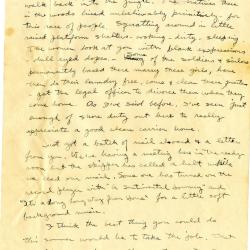 walk back into the jungle. The natives there
in the woods lived unbelievably primitively for
this race of people. Squatting around in little
raised platform shelters cooking - duty, sleeping
The women look at you with blank expressions
dull eyed dopes. Some of the soldiers & sions
permanently based there marry these girls, have
they do their laundry free, cook & clean their quarters
get the legal officer to divorce them when they
come home. As I've said before, I've seen just
enough of shore duty out here to really
appreciate a good clean carrier home.
Just got a batch of mail closed & a letter
from you. We're having a meeting here in the ready
room but the skipper is called a halt while
we read our mail. Some one has turned on the
record player with "a Sentimental Journey" and
"It's a long long way from home" for a little soft
background music.
I think the best thing you could do
this summer would be to take the job. That